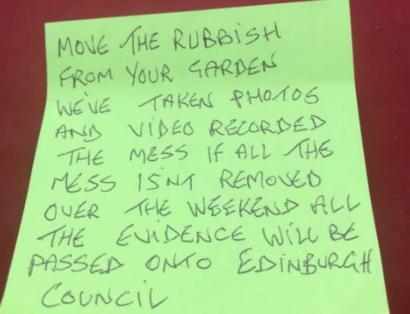 MOVE THE RUBBISH
FROM YOUR GARDEN
WE'VE TAKEN PHOTOS
AND VIDEO RECORDED
THE MESS IF ALL THE
MESS ISNT REMOVED
OVER THE WEEKEND ALL
THE EVIDENCE WILL BE
PASSED ONTO EDINBURGH
COUNCIL